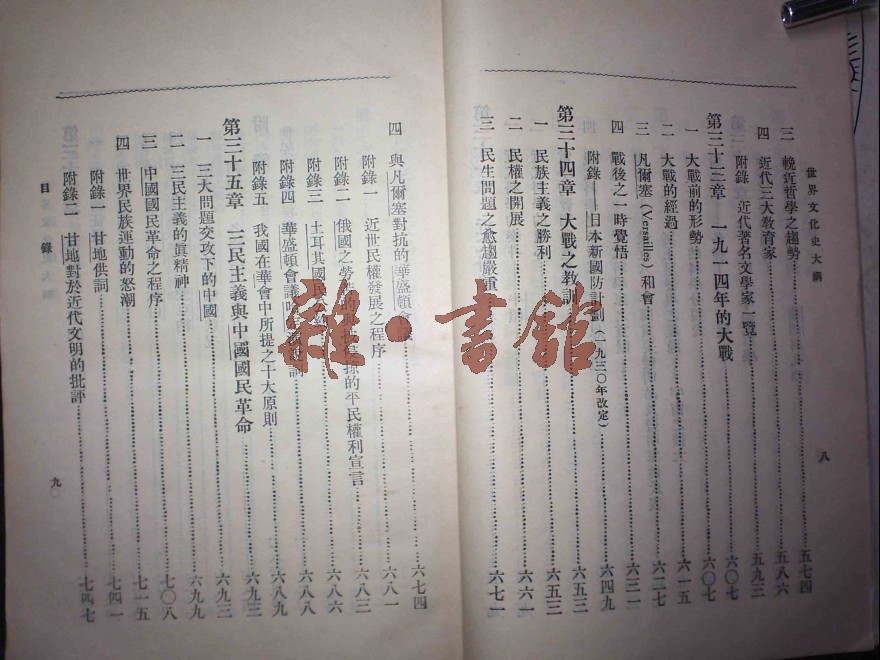 世界文化史大綱
三 輓近哲學之趨勢 五七四
四 近代三大教育家 五八六
附錄 近代著名文學家一覽 五九三
第三十三章 一九一四年的大戰 六〇七
一 大戰前的形勢 六〇七
二 大戰的經過 六一五
三 凡爾塞(Versailles)和會 六二七
四 戰後之一時覺悟 六三一
附錄——日本新國防計劃(一九三〇年改定) 六四九
第三十四章 大戰之教訓 六五三
一 民族主義之勝利 六五三
二 民權之開展 六六一
三 民生問題之愈趨嚴重 六七一
八
四 與凡爾塞對抗的華盛頓會 六七四
附錄一 近世民權發展之程序 六八一
附錄二 俄國之勞 的平民權利宣言 六八三
附錄三 土耳其國民 六八六
附錄四 華盛頓會議 六八八
附錄五 我國在華會中所提之十大原則 六八九
第三十五章 三民主義與中國國民革命 六九三
一 三大問題交攻下的中國 六九三
二 三民主義的眞精神 六九九
三 中國國民革命之程序 七〇八
四 世界民族運動的怒潮 七一五
附錄一 甘地供詞 七四一
附錄二 甘地對於近代文明的批評 七四七
目錄
九
雜·書館